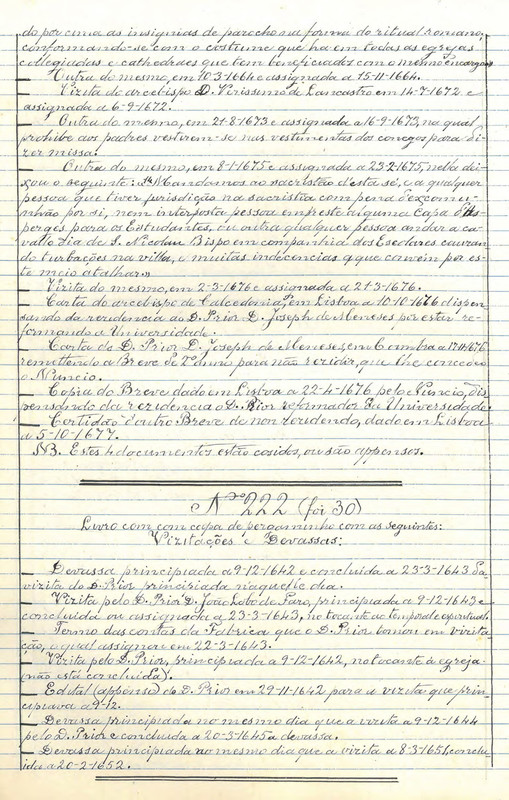 do por cima as insignias de parocho na forma do ritual romano,
conformando-se com o costume que ha em todas as egrejas
collegiadas e cathedraes que tem beneficiados com o mesmo encargo»
— Outra do mesmo, em 10-3-1664 e assignada a 15-11-1664.
— Vizita do arcebispo D. Verissimo de Lancastro em 14-7-1672 e
assignada a 6-9-1672.
— Outra do mesmo, em 21-8-1673 e assignada a 16-9-1673, na qual
prohibe aos padres vestirem-se nas vestimentas dos conegos para di-
zer missa.
— Outra do mesmo, em 8-1-1675 e assignada a 23-2-1675, nella dei-
xou o seguinte: «Mandamos ao sacristão d'esta sé, e a qualquer
pessoa que tiver jurisdição na sacristia com pena d'excomu-
nhão por si, nem interposta pessoa empreste alguma Capa d'As-
perges para os Estudantes, ou outra qualquer pessoa andar a ca-
vallo dia de S. Nicolau Bispo em companhia dos Escolares causan-
do turbações na villa, e muitas indecencias q que convem por es-
te meio atalhar.»
— Vizita do mesmo, em 2-3-1676 e assignada a 21-3-1676.
— Carta do arcebispo de Calcedonia, em Lisboa a 10-10-1676 dispen-
sando da rezidencia ao D. Prior D. Joseph de Menezes por estar re-
formando a Universidade.
— Carta do D. Prior D. Joseph de Menezes, em Coimbra a 17-11-1676
remettendo a Breve de 2º anno para não rezidir, que lhe concedeo
o Nuncio.
— Copia do Breve dado em Lisboa a 22-4-1676 pelo Nuncio, dis-
pensando da rezidencia o D. Prior reformador da Universidade.
— Certidão d'outro Breve de non rezidendo, dado em Lisboa
a 5-10-1677.
NB. Estes 4 documentos estão cosidos, ou são appensos.
Nº 222 (foi 30)
Livro com com capa de pergaminho com as seguintes:
Vizitações e Devassas:
— Devassa principiada a 9-12-1642 e concluida a 23-3-1643. Da
vizita do D. Prior principiada n'aquelle dia.
— Vizita pelo D. Prior D. João Lobo de Faro, principiada a 9-12-1643 e
concluida ou assignada a 23-3-1643, no tocante ao temporal e espiritual.
— Termo das contas da Fabrica que o D. Prior tomou em vizita-
ção, o qual assignou em 22-3-1643.
— Vizita pelo D. Prior, principiada a 9-12-1642, no tocante á egreja
(não está concluida).
— Edital (appenso) do D. Prior em 29-11-1642 para a vizita que prin-
cipiava a 9-12.
— Devassa principiada no mesmo dia que a vizita a 9-12-1644
pelo D. Prior e concluida a 20-3-1645 a devassa.
— Devassa principiada no mesmo dia que a vizita a 8-3-1651, conclu-
ida a 20-2-1652.